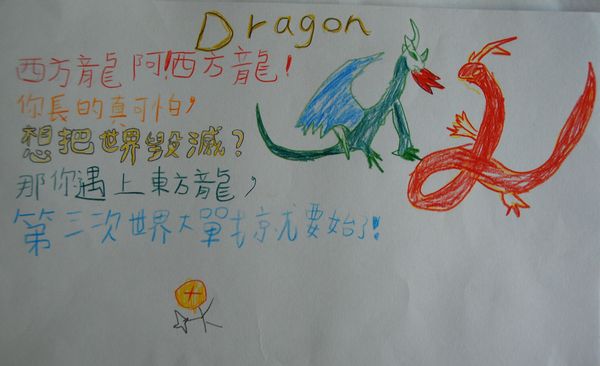 Dragon
西方龍阿!西方龍!
你長的真可怕,
想把世界毀滅?
那你遇上東方龍,
第三次世界大單才京尤要始了!